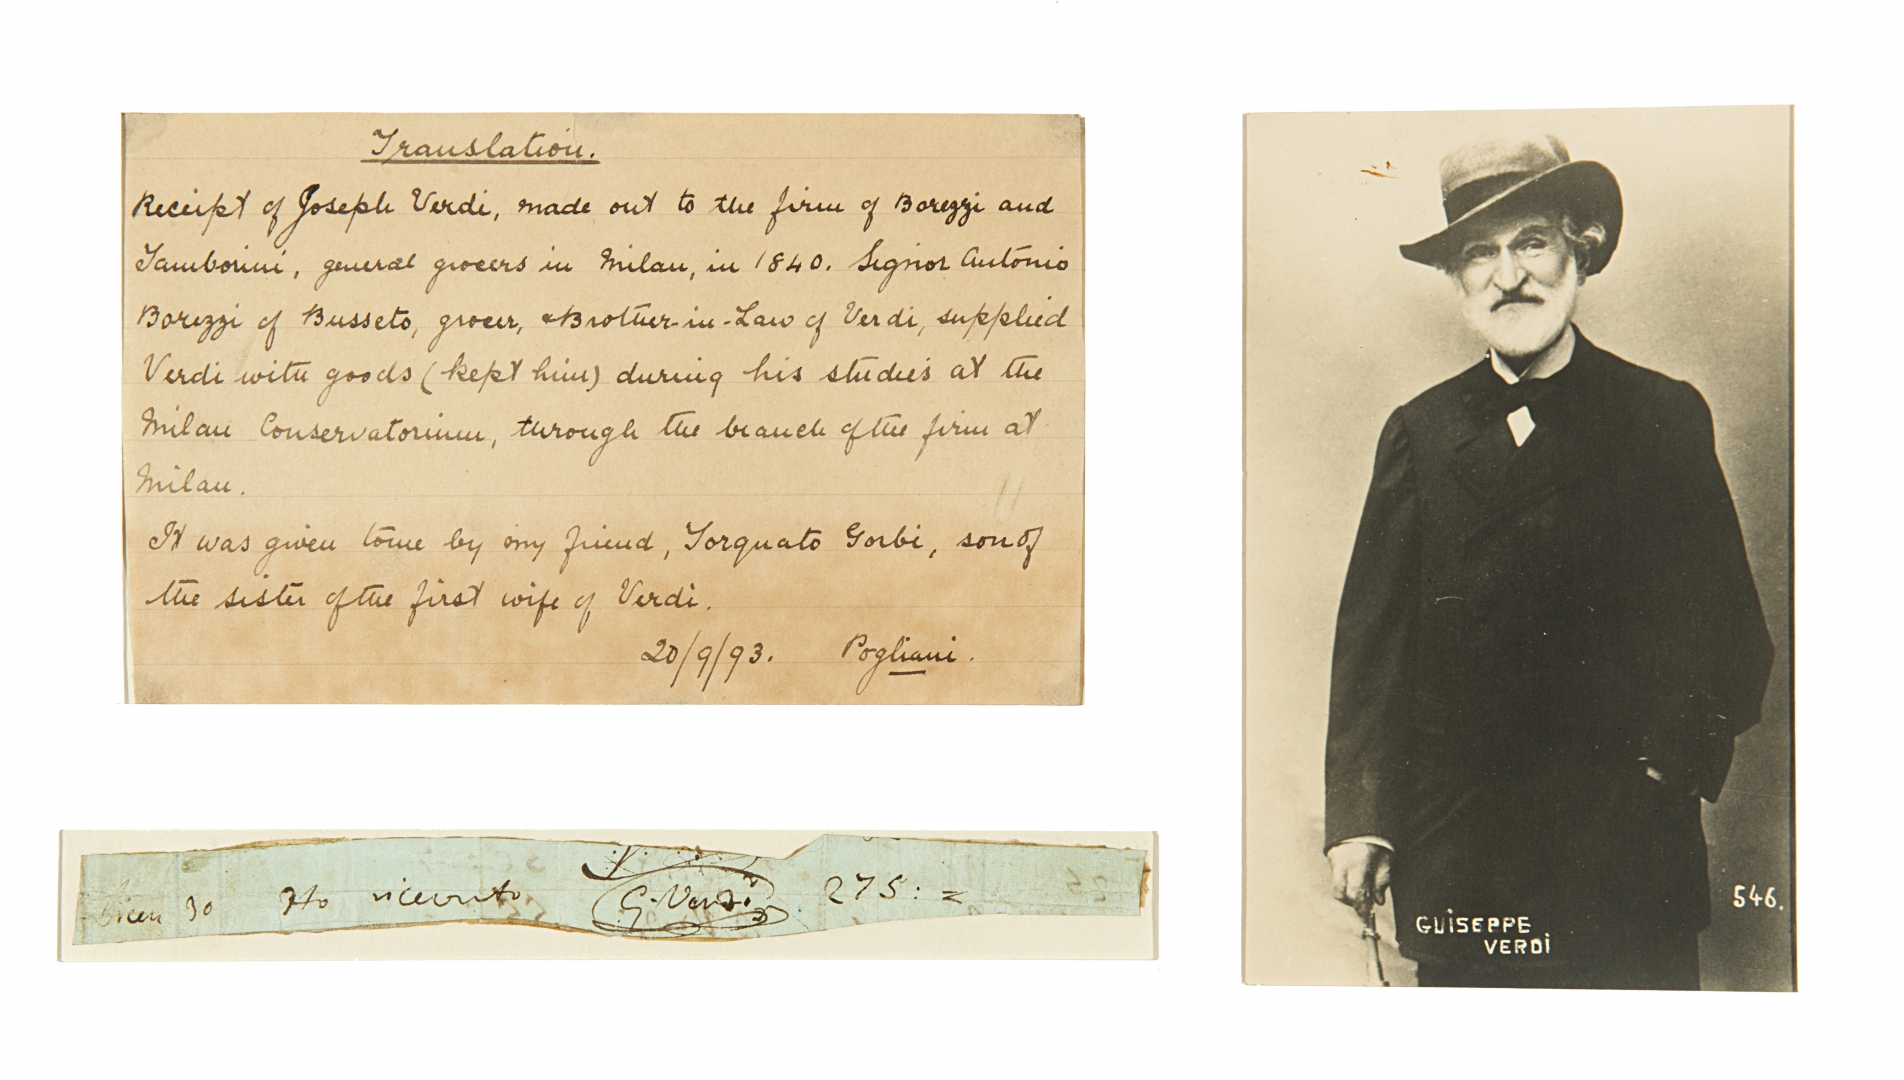 Translation.
Receipt of Joseph Verdi, made out to the firm of Borezzi and
Tamborini, general grocers in Milan, in 1840. Signor Antonio
Borezzi of Busseto, grocer, & Brother-in-Law of Verdi, supplied
Verdi with goods (kept him) during his studies at the
Milan Conservatorium, through the branch of the firm at
Milan.
It was given to me by my friend, Torquato Gorbi, son of
the sister of the first wife of Verdi.
20/9/93. Pogliani.
30 Ho ricevuto G. Verdi 275: =
546.
GUiSEPPE
VERDi